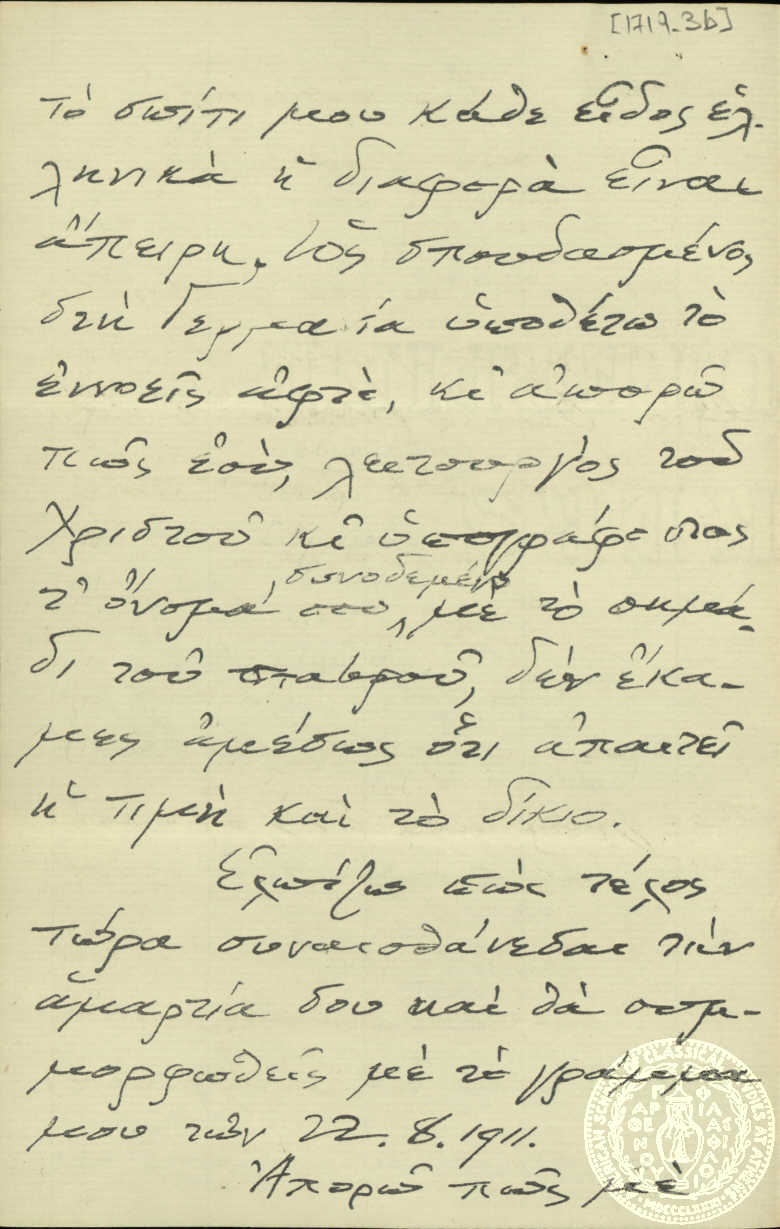 [1719-3b]
τὸ σπίτι μου κάθε εἶδος ἑλ-
ληνικὰ ἡ διαφορὰ εἶναι
ἄπειρη. Ὡς σπουδασμένος
στὴ Γερμανία ὑποθέτω τὸ
ἐννοεῖς ἀφτὸ, κι ἀπορῶ
πῶς ἐσύ, λειτουργὸς τοῦ
Χριστοῦ κι ὑπογράφοντας
τ' ὄνομά σου, συνοδεμένο μὲ τὸ σημά-
δι τοῦ σταβροῦ, δὲν ἔκα-
μες ἀμέσως ὅτι ἀπαιτεῖ
ἡ τιμὴ καὶ τὸ δίκιο.
Ἐλπίζω πὼς τέλος
τώρα συναισθάνεσαι τὴν
ἁμαρτία σου καὶ θὰ συμ-
μορφωθεῖς μὲ τὸ γράμμα
μου τῶν 22.8.1911.
Ἀπορῶ πῶς μὲ
AMERICAN SCHOOL OF CLASSICAL STUDIES AT ATHENS
MDCCCLXXXI